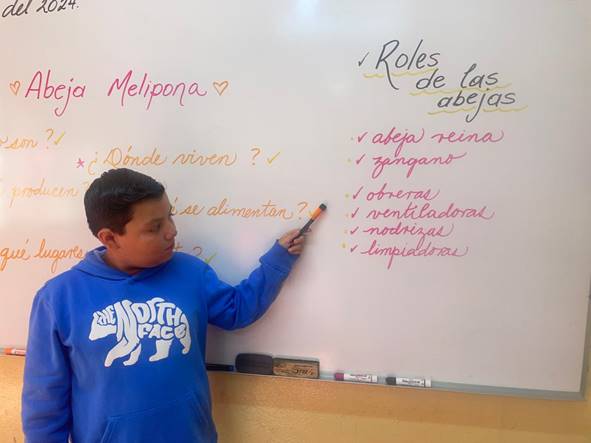 del 2024.
Abeja Melipona
son?
¿Dónde viven?
producen?
se alimentan?
qué lugares
?
Roles
de las
abejas
abeja reina
zángano
obreras
ventiladoras
nodrizas
limpiadoras
THE
NORTH
FACE